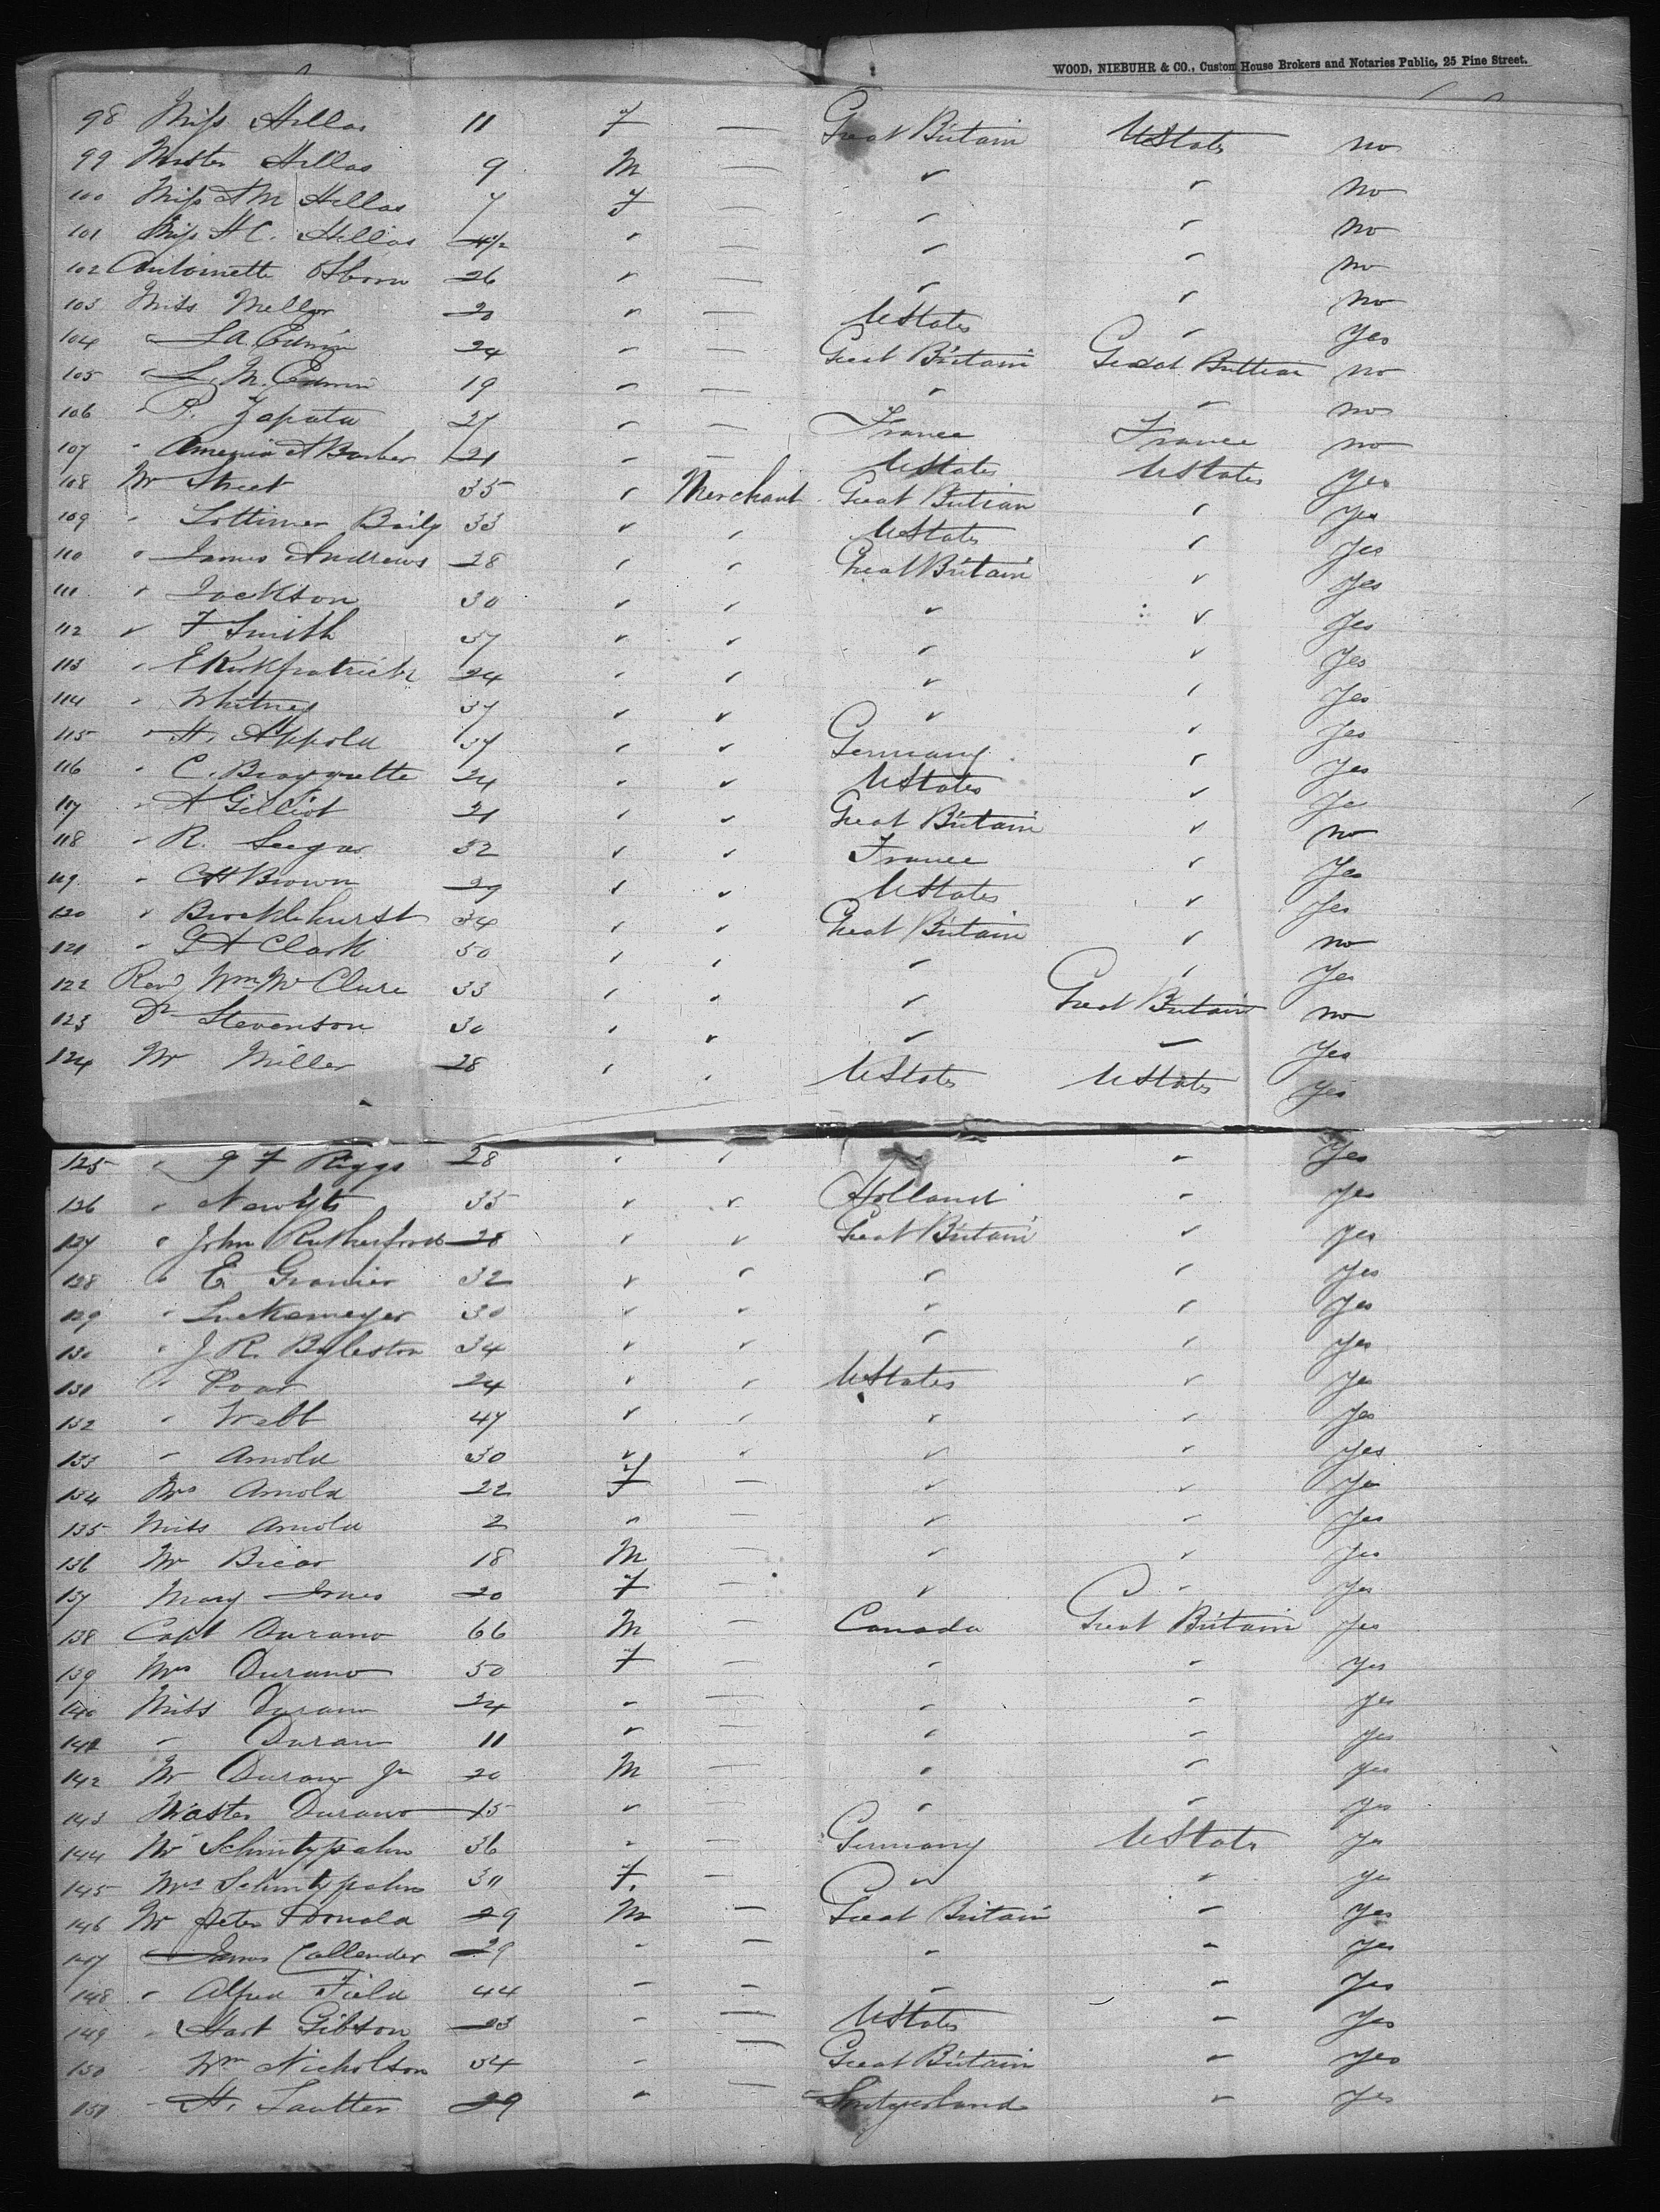 WOOD, NIEBUHR & CO., Custom House Brokers and Notaries Public, 25 Pine Street.
98 Miss Hillas 11 F — Great Britain UStates no
99 Master Hillas 9 M — " " no
100 Miss A M Hillas 7 F — " " no
101 Miss H C. Hillas 4½ " — " " no
102 Antoinette Osborn 26 " — " " no
103 Miss Mellor 20 " — UStates " Yes
104 " L A. Edwin 24 " — Great Britain Great Brittian no
105 " L. M. Edwin 19 " — " " no
106 " P. Zapata 27 " — France France no
107 " A Barber 21 " — UStates UStates Yes
108 Mr Street 35 " Merchant Great Britian " Yes
109 " Lottimer Baily 33 " " UStates " Yes
110 " James Andrews 28 " " Great Britain " Yes
111 " Jackson 30 " " " " Yes
112 " F Smith 37 " " " " Yes
113 " E Kirkpatrick 24 " " " " Yes
114 " Whitney 37 " " " " Yes
115 " H. Appold 37 " " Germany " Yes
116 " C. 24 " " UStates " Ye
117 " A Gilliot 21 " " Great Britain " no
118 " R. Seegar 32 " " France " Yes
119 " C H Brown 29 " " UStates " Yes
120 " Brocklehurst 34 " " Great Britain " no
121 " G A Clark 50 " " " " Yes
122 Revd Wm Mc Clure 33 " " " Great Britain no
123 Dr Stevenson 30 " " " " Yes
124 Mr Miller 28 " " UStates UStates Yes
125 " G F Riggs 28 " " " " Yes
126 " 35 " " Holland " Yes
127 " John Rutherford 28 " " Great Britain " Yes
128 " E Granier 32 " " " " Yes
129 " Luckemeyer 30 " " " " Yes
130 " J R. Byleston 34 " " " " Yes
131 " Poar 24 " " UStates " Ye
132 " Webb 47 " " " " Yes
133 " Arnold 30 " " " " Yes
134 Mrs Arnold 22 F — " " Ye
135 Miss Arnold 2 " — " " Yes
136 Mr 18 M — " " Yes
137 Mary Jones 20 F — " " Ye
138 Capt Durano 66 M — Canada Great Britain Yes
139 Mrs Durano 50 F — " " Yes
140 Miss Duran 24 " — " " Yes
141 " Duran 11 " — " " Yes
142 Mr Duran Jr 20 M — " " Yes
143 Master Durano 15 " — " " Yes
144 Mr Schnitzpahn 36 " — Germany UStats Ye
145 Mrs Schnitzpahn 30 F. — " " Ye
146 Mr Peter Donald 29 M — Great Britain " Yes
147 " James Callender 29 " — " " Yes
148 " Alfred Field 44 " — " " Yes
149 " Hart Gibson 23 " — UStates " Yes
150 Wm Nicholson 34 " — Great Britain " Yes
151 " H. Sautter 29 " — Switzerland " Yes